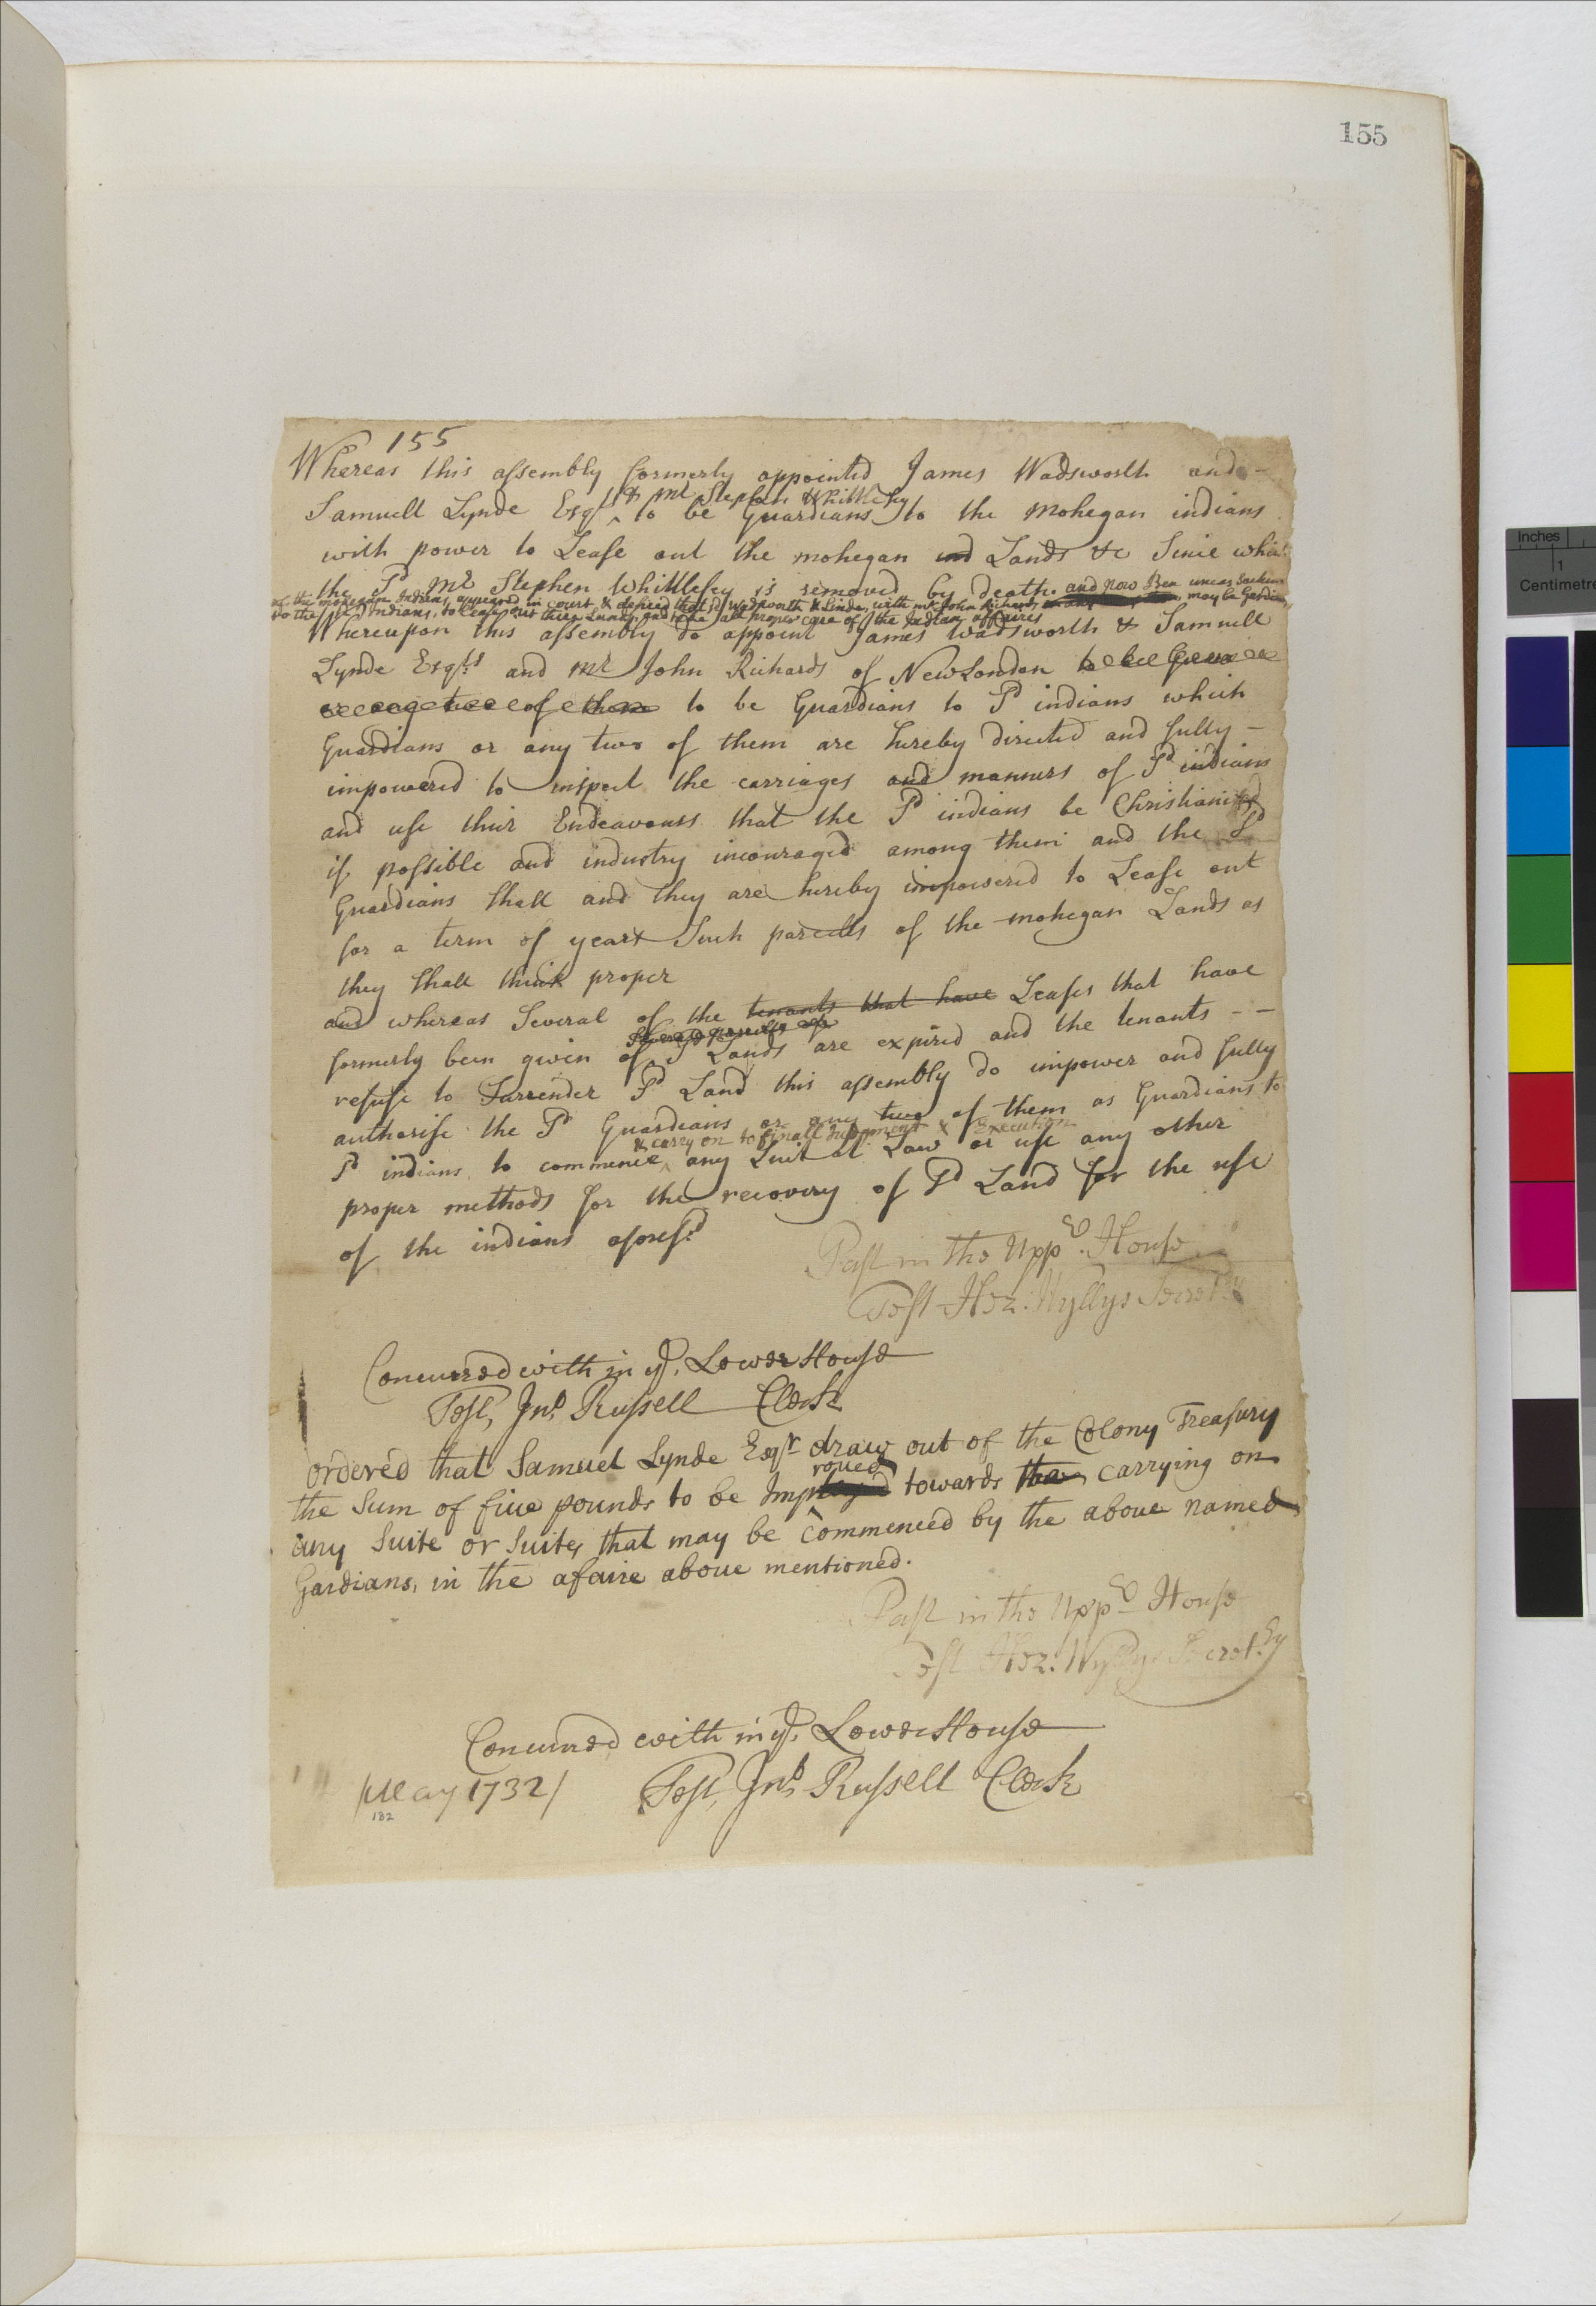 155
155
Whereas this assembly formerly appointed James Wadsworth and -
& mr Stephen Whittlesy
Samuell Lynde Esqrs ^ to be Guardians to the mohegan indians
with power to Lease out the mohegan Lands &c Sinie which
the Sd mr Stephen Whittlesey is removed by death. and now Ben uncas Sachem
of the mohegan Indians, appeared in court & desired that sd wadsworth & Linde, with mr John Richards may be Gardians
to the sd Indians, to lease out their Lands, and take all proper care of the Indian affaires
Whereupon this assembly do appoint James Wadsworth & Samuell
Lynde Esqrs and mr John Richards of New London to be
or any two of them to be Guardians to Sd indians which
Guardians or any two of them are hereby directed and fully -
impowered to inspect the carriages and manners of Sd indians
and use their Endeavours that the Sd indians be Christianised
if possible and industry incouraged among them and the Sd
Guardians shall and they are hereby impowered to Lease out
for a term of years Such parcells of the mohegan Lands as
they shall think proper
and whereas Several of the tenants that have Leases that have
Several parcells of
formerly been given of Sd Lands are expired and the tenants - -
refuse to Surrender Sd Land this assembly do impower and fully
authorise the Sd Guardians or any two of them as Guardians to
& carry on to finall Judgment & Execution
Sd indians to commence ^ any Suit at Law or use any other
proper methods for the recovery of Sd Land for the use
of the indians aforesd
Past in the Uppr House
Test Hez: Wyllys Secretry
Concurred with in ye Lower House
Test, Jno Russell Clerk
ordered that Samuel Lynde Esqr draw out of the Colony Treasury
roved
the Sum of five pounds to be Imp^ towards the carrying on
any Suite or Suits that may be commenced by the above named
Gardians, in the afaire above mentioned.
Past in the Uppr House
Test Hez: Wyllys Secretry
Concurred with in ye Lower House
Test, Jno Russell Clerk
/May 1732/
182
Inches
1
Centimetre